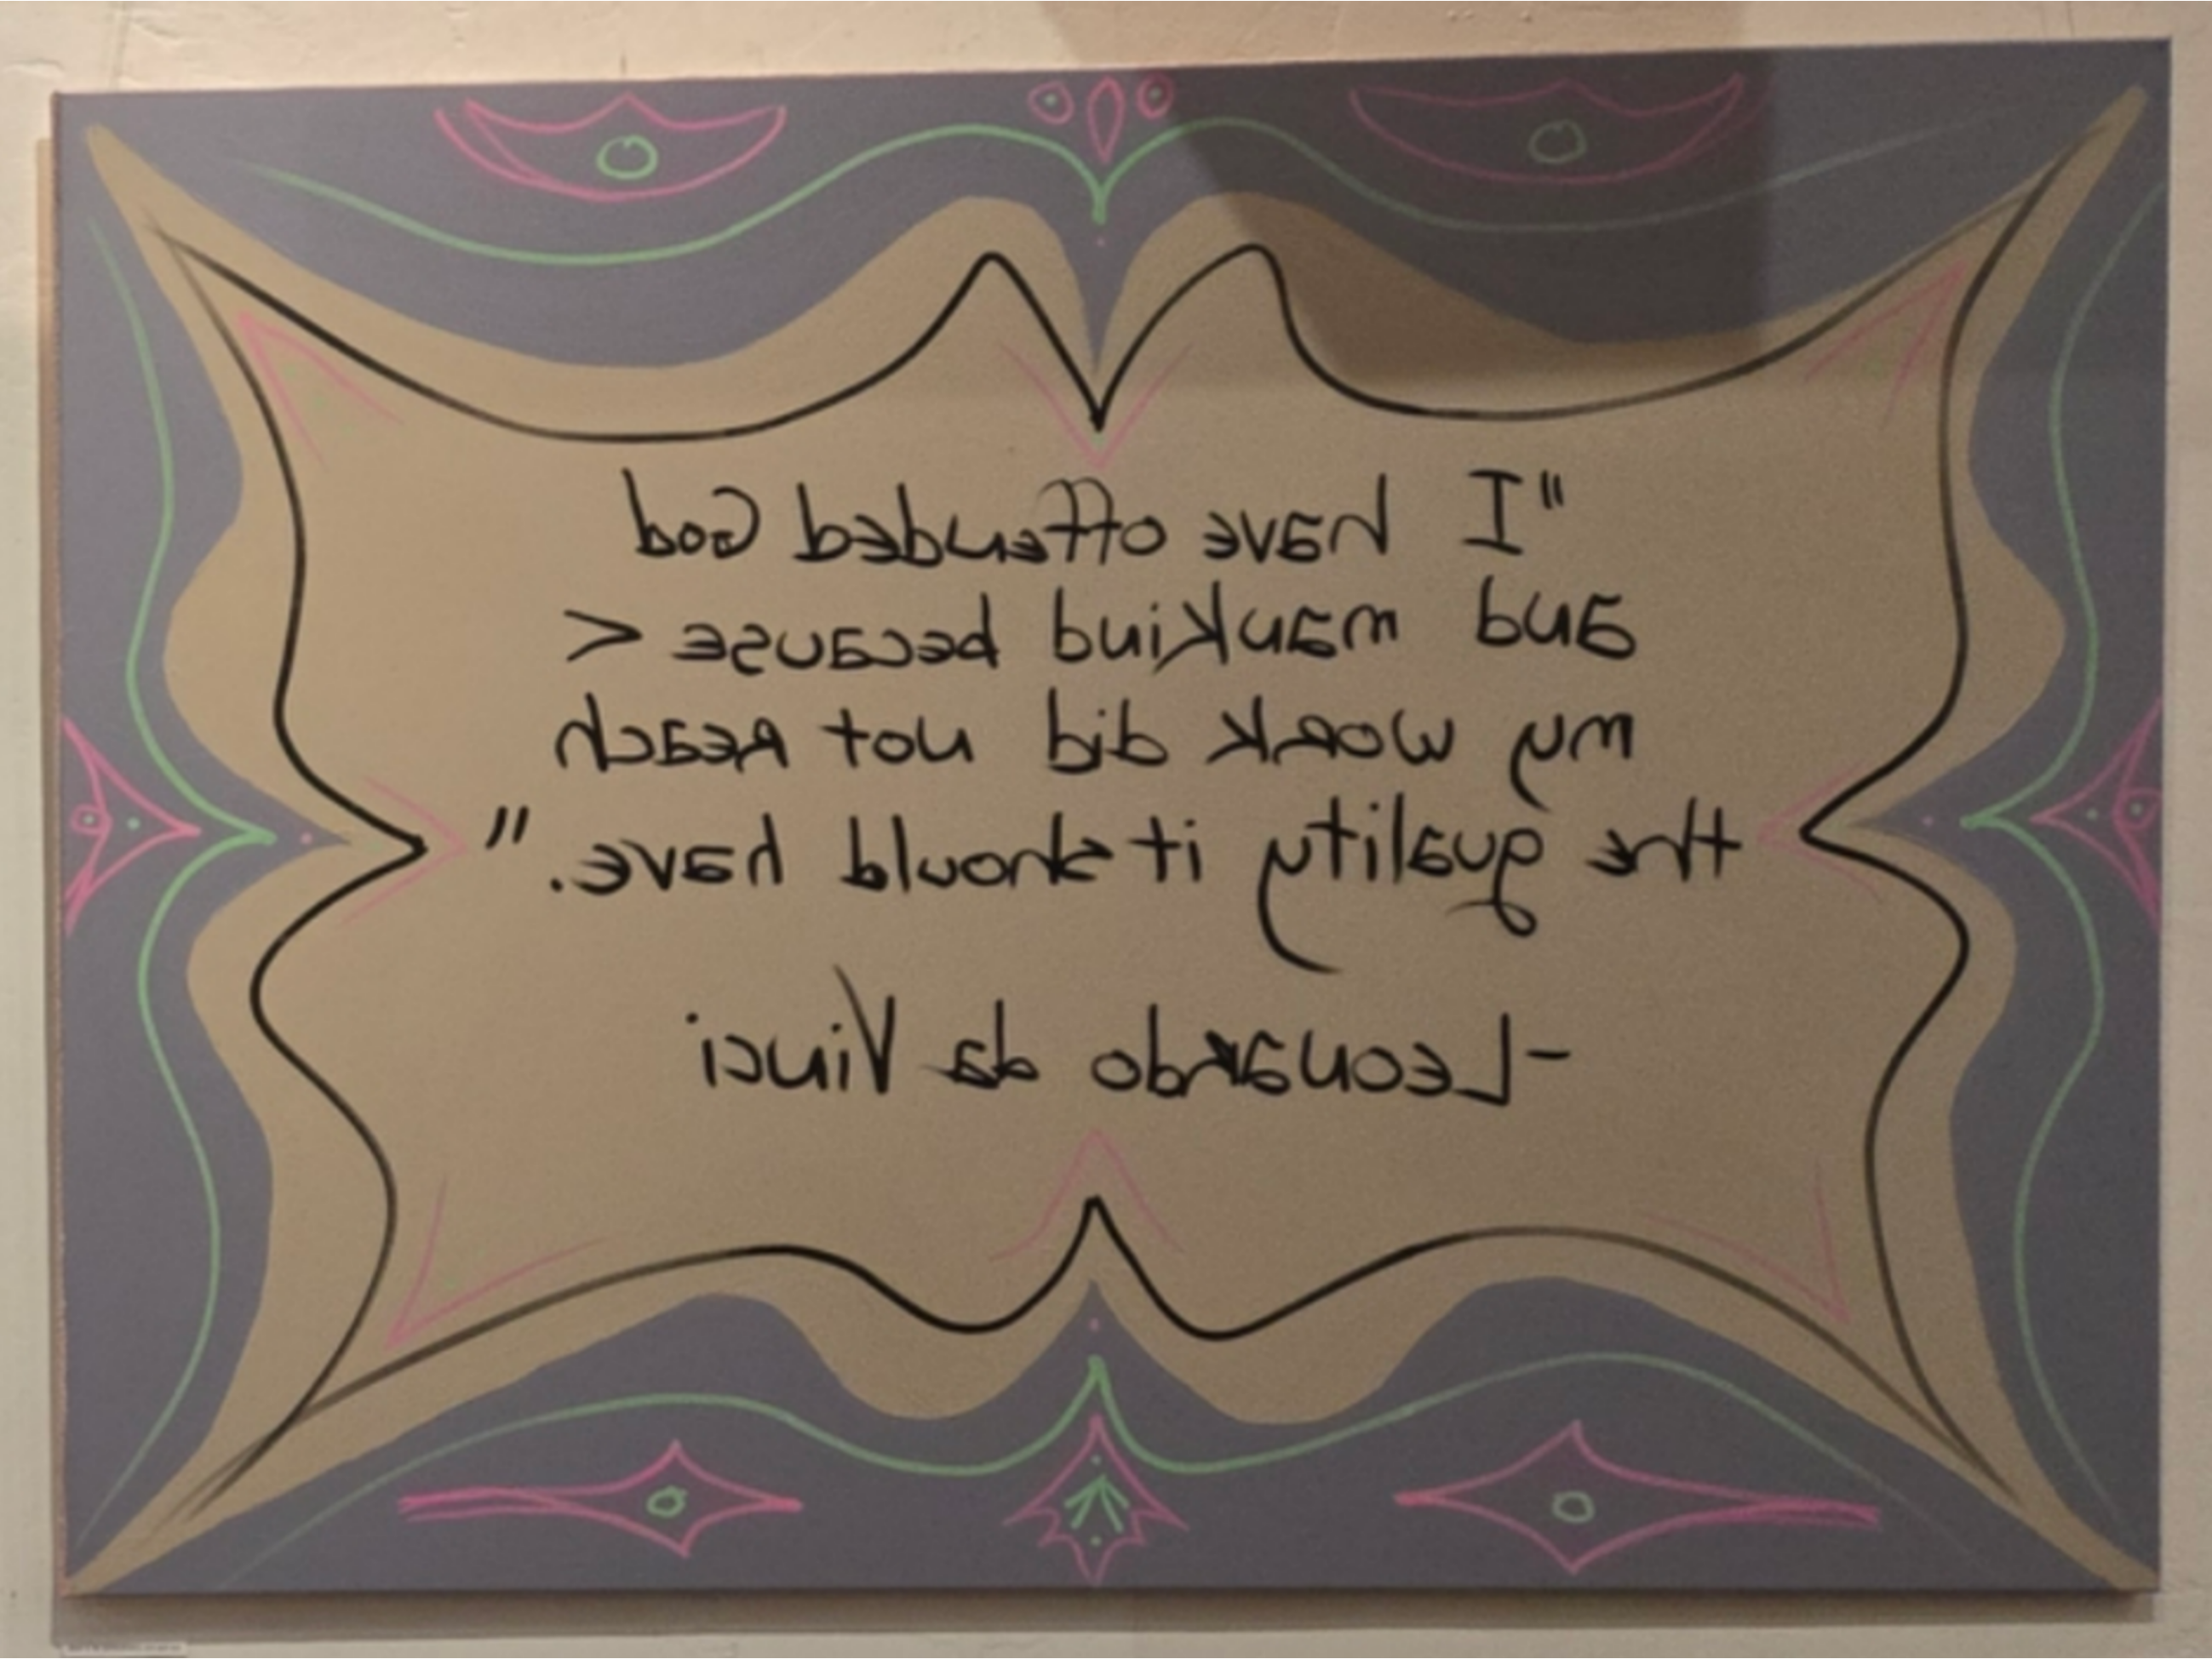 "I have offended God
and mankind because <
my work did not reach
the quality it should have."
-Leonardo da Vinci